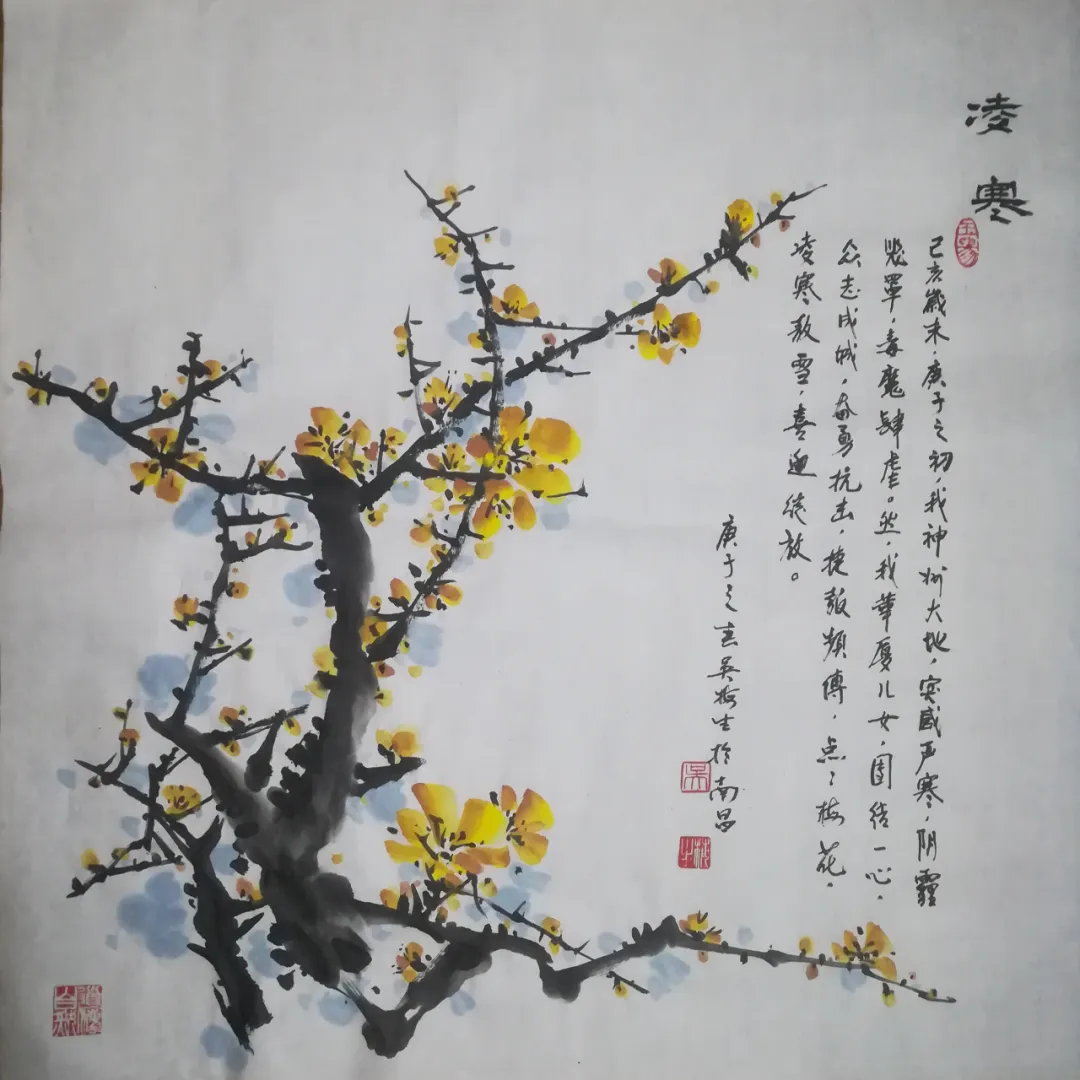 凌寒
己亥歲末，庚子之初，我神州大地，突感严寒，阴霾
笼罩，毒魔肆虐。然，我華夏儿女，團结一心，
众志成城，奋勇抗击，捷报频傳，点点梅花，
凌寒敖雪，喜迎绽放。
庚子之春吴梅生於南昌
吴